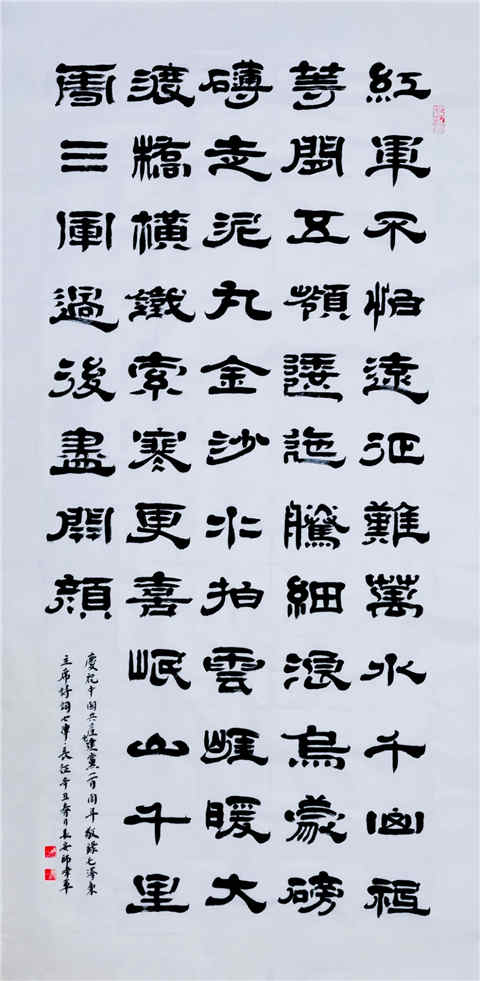 紅軍不怕遠征難萬水千山祗
等閒五嶺逶迤騰細浪烏蒙磅
礴走泥丸金沙水拍雲崖暖大
渡橋橫鐵索寒更喜岷山千里
雪三軍過後盡開顏
慶祝中国共產建黨一百周年敬錄毛澤東
主席詩詞七律長征辛丑春月長安師